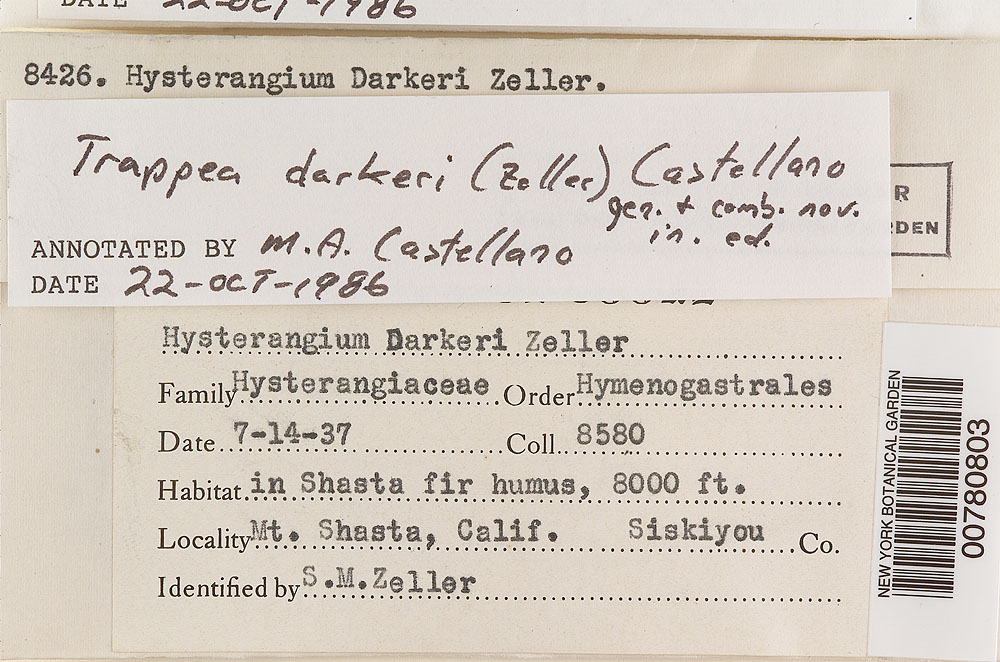 DATE 22-OCT-1986
8426. Hysterangium Darkeri Zeller.
Trappea darkeri (Zeller) Castellano
gen. + comb. nov.
in. ed.
ANNOTATED BY M.A. Castellano
DATE 22-OCT-1986
R
RDEN
Hysterangium Darkeri Zeller
Family Hysterangiaceae Order Hymenogastrales
Date 7-14-37 Coll. 8580
Habitat in Shasta fir humus, 8000 ft.
Locality Mt. Shasta, Calif. Siskiyou Co.
Identified by S.M.Zeller
NEW YORK BOTANICAL GARDEN
00780803